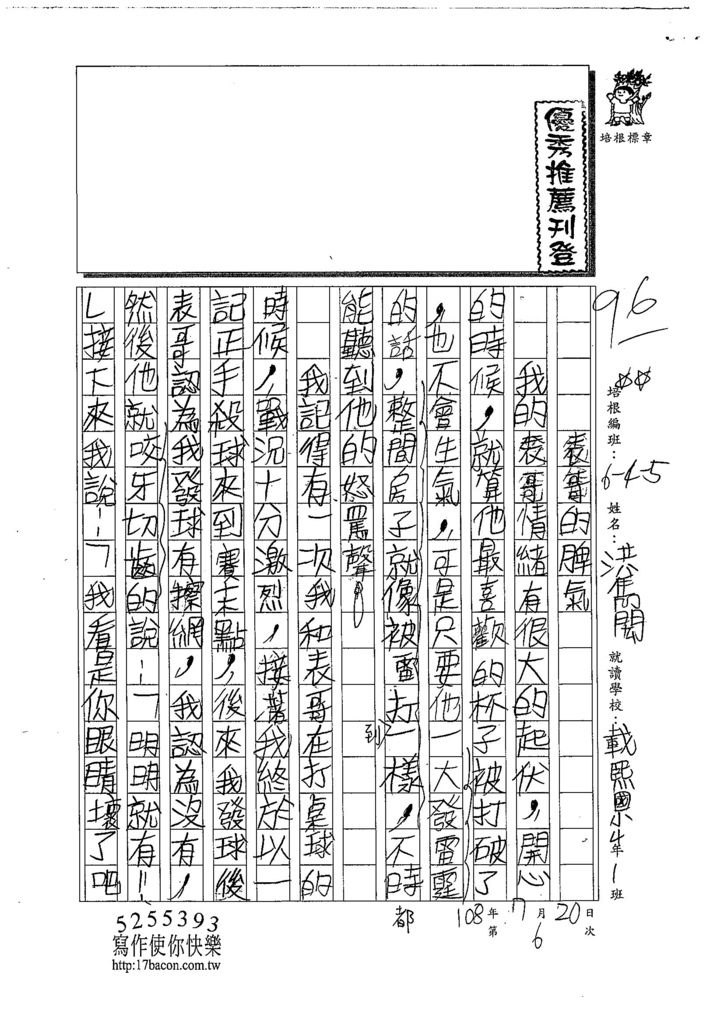 培根標章
優秀推薦刊登
96
培根編班：6-45 姓名：洪 就讀學校：載熙國小4年1班
108年7月20日
第6次
表哥的脾氣
我的表哥情緒有很大的起伏，開心
的時候，就算他最喜歡的杯子被打破了
，也不會生氣，可是只要他一大發雷霆
的話，整間房子就像被雷打到一樣，不時都
能聽到他的怒罵聲！
我記得有一次我和表哥在打桌球的
時候，戰況十分激烈，接著我終於以一
記正手殺球來到賽末點，後來我發球後
表哥認為我發球有擦網，我認為沒有，
然後他就咬牙切齒的說：「明明就有！
」接下來我說：「我看是你眼睛壞了吧
5255393
寫作使你快樂
http:17bacon.com.tw